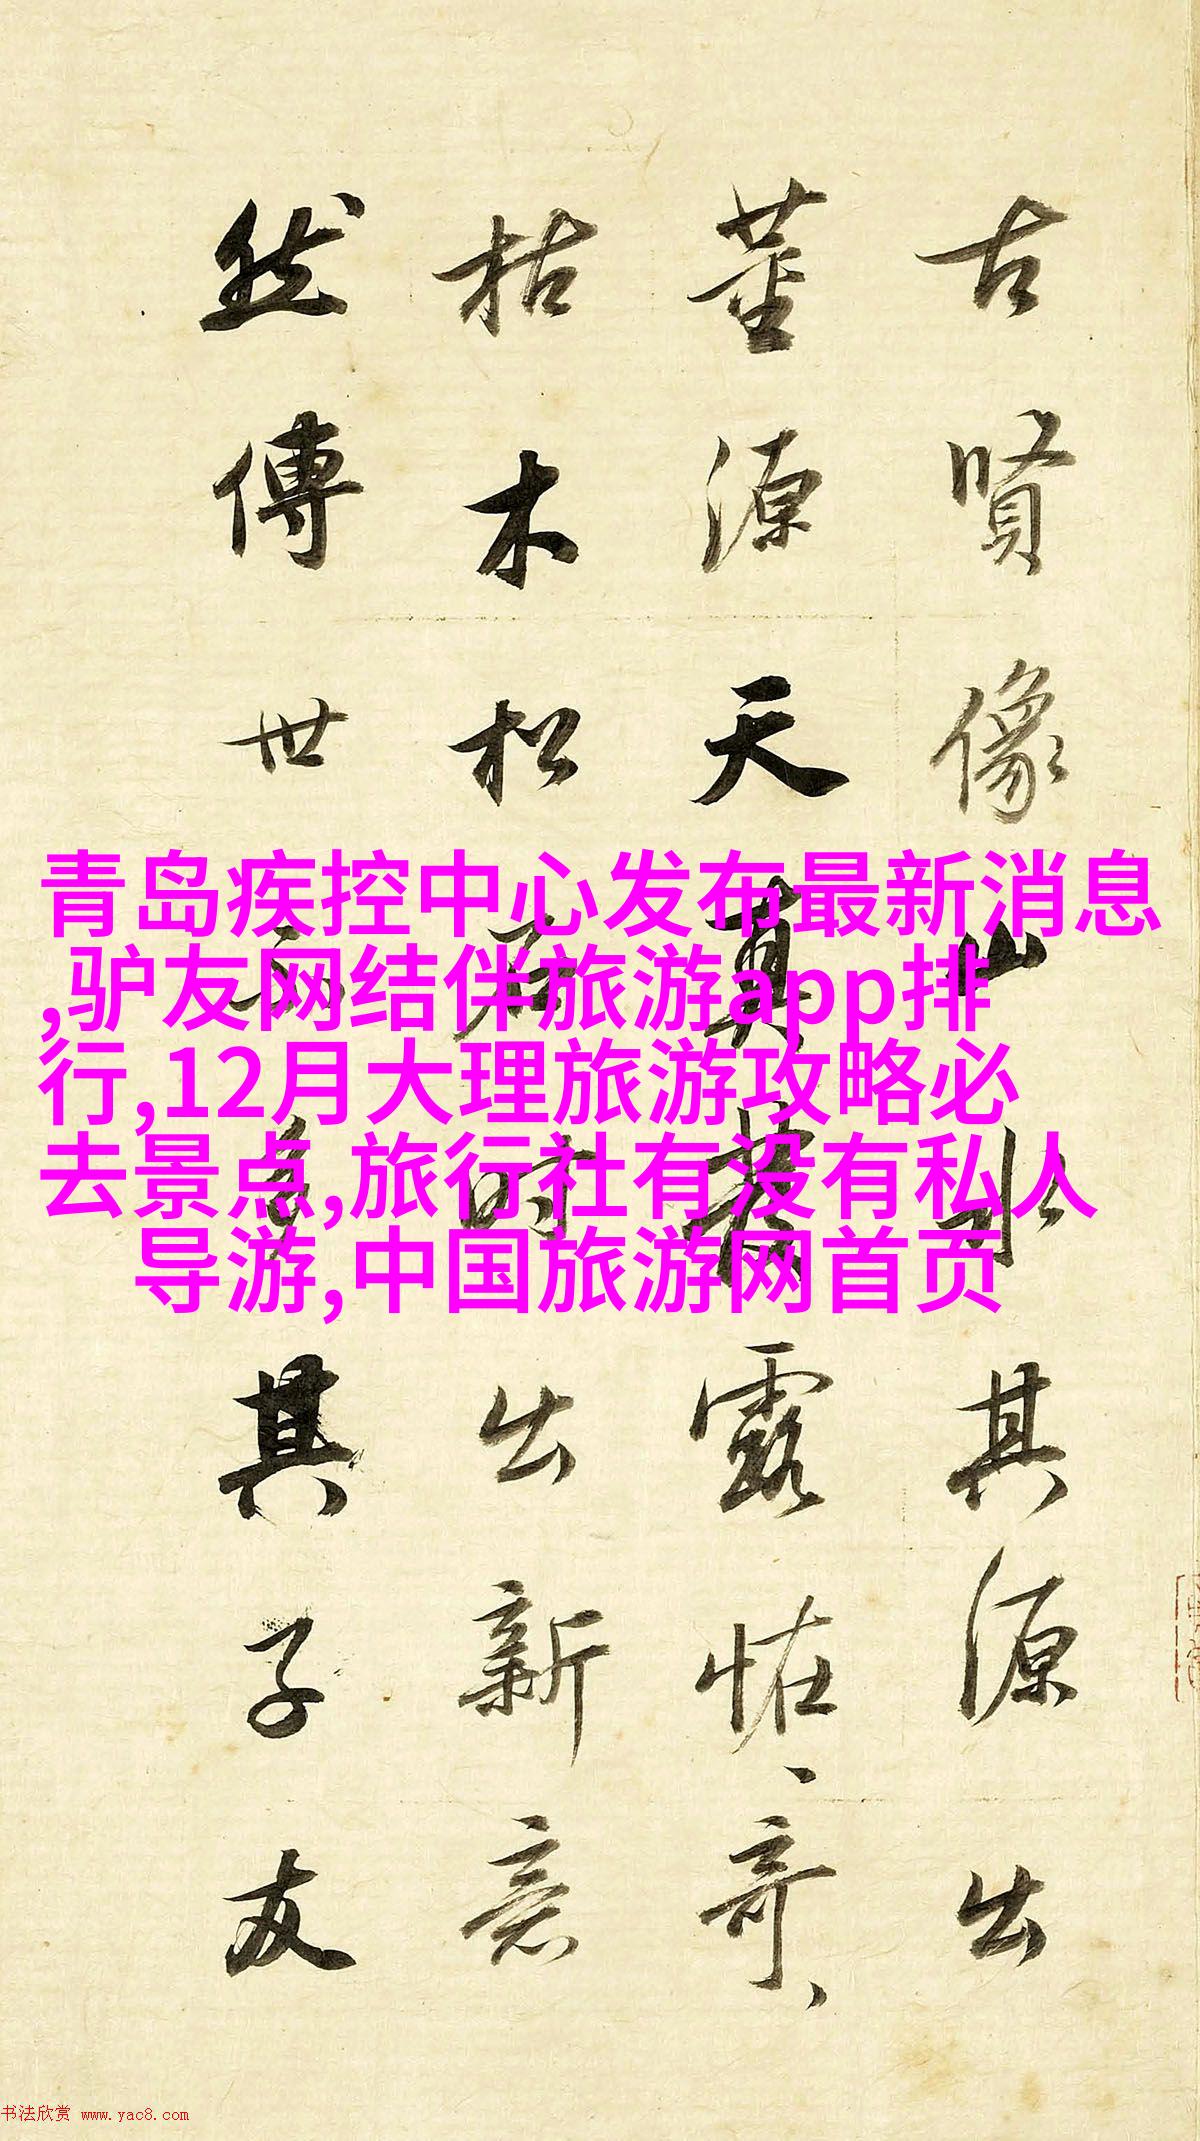 古賢像山水其源出
董源天真露恠奇
枯木松石时出新意
然傳世不多其子友
青岛疾控中心发布最新消息
,驴友网结伴旅游app排
行,12月大理旅游攻略必
去景点,旅行社有没有私人
导游,中国旅游网首页
书法欣赏 www.yac8.com